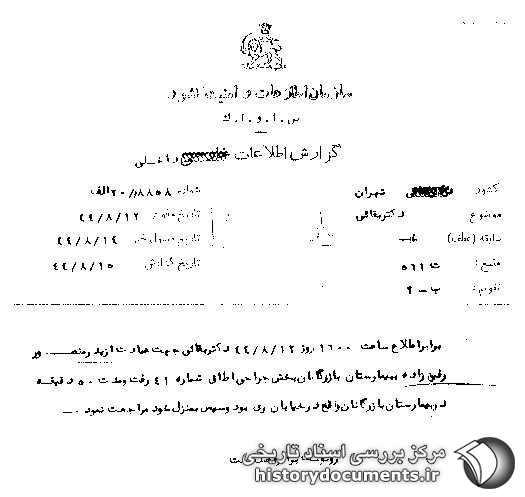 سازمان اطلاعات و امنیت کشور
س.ا.و.ا.ک
گزارش اطلاعات داخلی
کشور تهران
شماره ۲۰/۸۸۵۸الف
موضوع دکتربقائی
تاریخ وقوع ۴۴/۸/۱۲
سابقه (عطف)
تاریخ ۴۴/۸/۱۴
منبع: ت ۵۶۱
تاریخ گزارش ۴۴/۸/۱۵
تقویم: ب-۲
برابر اطلاع ساعت ۱۶۰۰ روز ۴۴/۸/۱۲ دکتربقائی جهت عیادت از پدر منصور
رفیع زاده به بیمارستان بازرگانان بخش جراحی اطاق شماره ۴۱ رفت و مدت ۵۰ دقیقه
در بیمارستان بازرگانان واقع در خیابان ری بود و سپس بمنزل خود مراجعت نمود.
مرکز بررسی اسناد تاریخی
historydocuments.ir